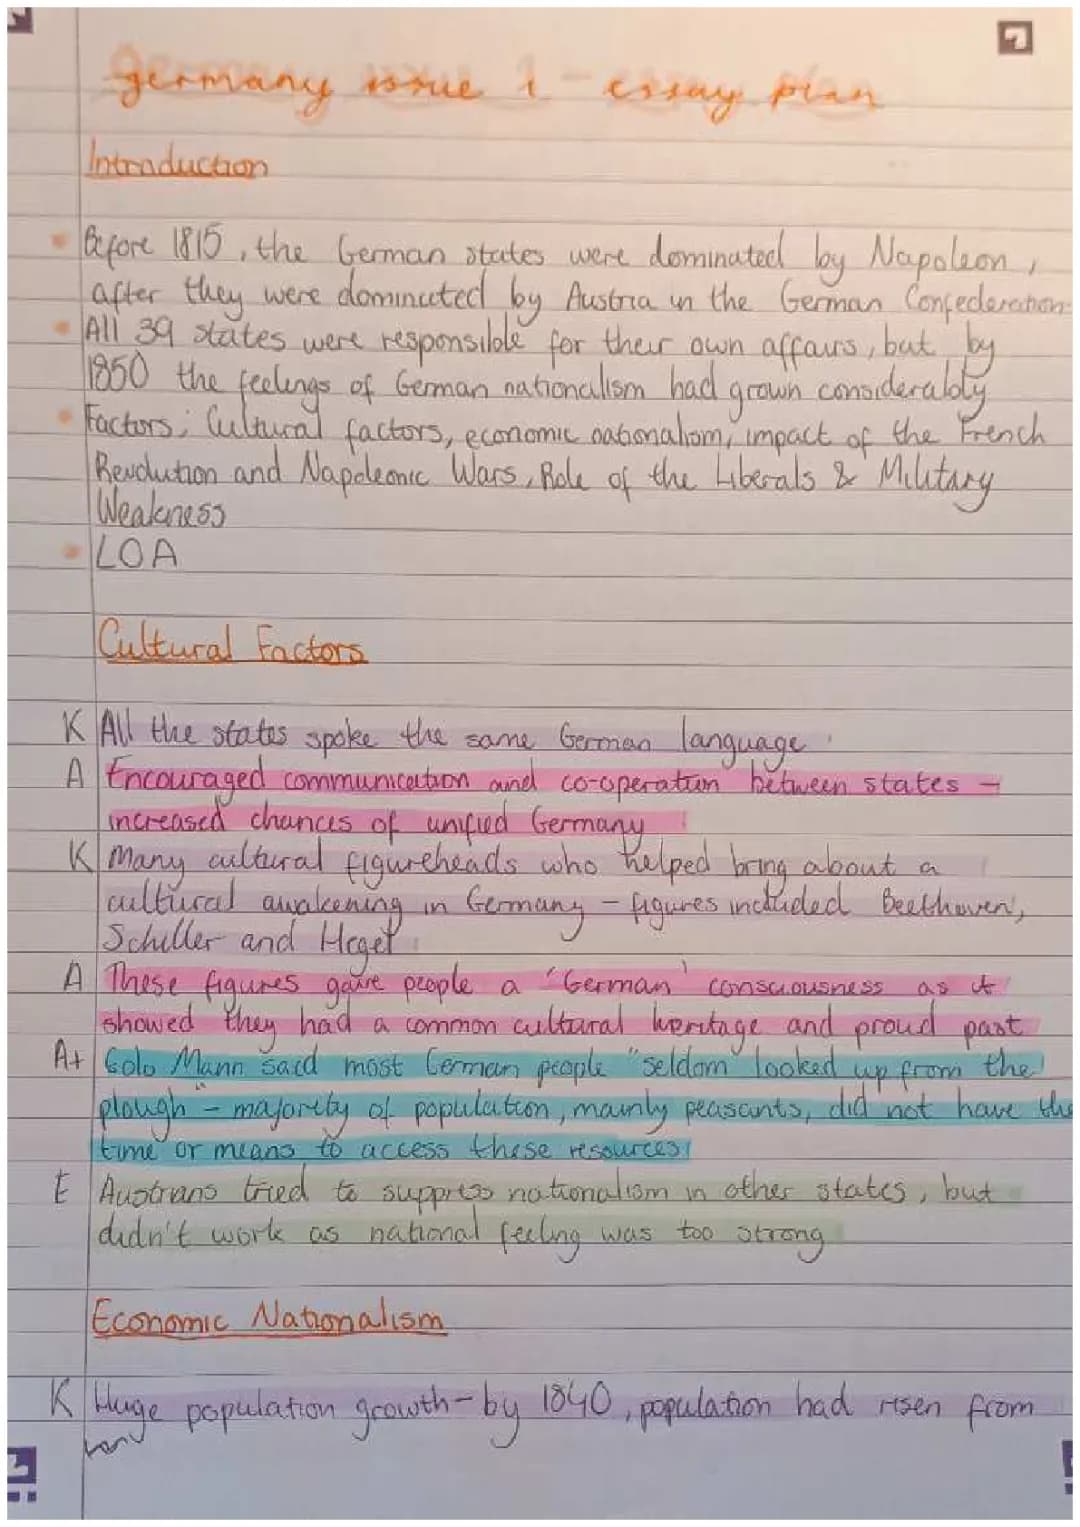 germany issue 1 - essay plan
Introduction
Before 1815, the German states were dominated by Napoleon,
after they were dominated by Austria in the German Confederation
All 39 states were responsible for their own affairs, but by
1850 the feelings of German nationalism had grown considerably
Factors: Cultural factors, economic nationalism, impact of the French
Revolution and Napoleonic Wars, Role of the Liberals & Military
Weakness
LOA
Cultural Factors
K All the states spoke the same German language
A Encouraged communication and co-operation between states -
increased chances of unified Germany
K Many cultural figureheads who helped bring about a
cultural awakening in Germany - figures included Beethoven,
Schiller and Hegel
A These figures gave people a 'German' consciousness as it
showed they had a common cultural heritage and proud past
A+ Golo Mann said most German people "seldom looked up from the
plough" - majority of population, mainly peasants, did not have the
time or means to access these resources
E Austrians tried to suppress nationalism in other states, but
didn't work as national feeling was too strong
Economic Nationalism
K Huge population growth - by 1840, population had risen from